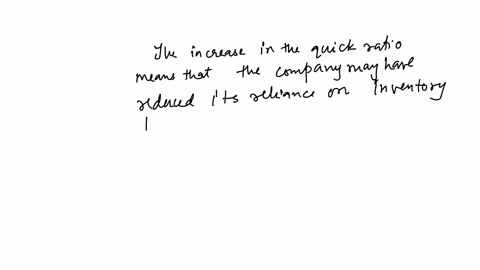 The increase in the quick ratio
means that the company may have
reduced its reliance on inventory